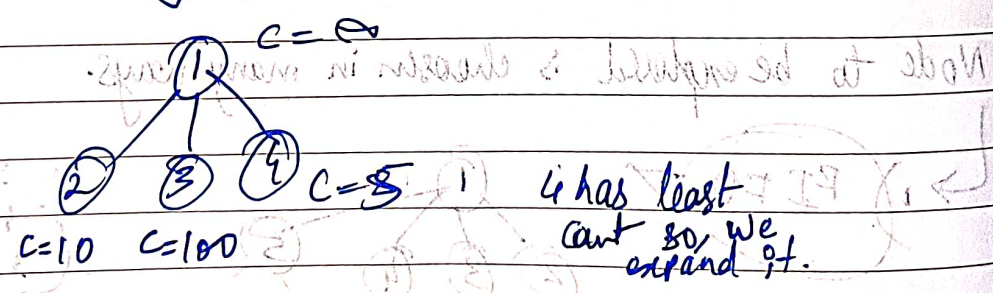 C = ∞
1
2 3 4 C=5
C=10 C=100
4 has least
cost so, we
expand it.